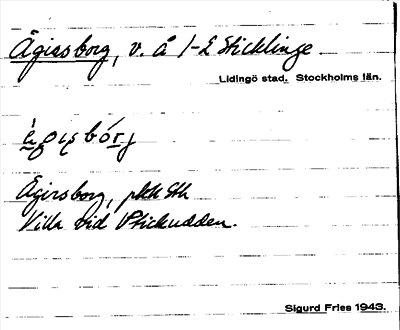 Ägirsborg, v. å 1-E Sticklinge
Lidingö stad. Stockholms län.
Ägirsborg,
Villa vid Sticudden.
Sigurd Fries 1943.